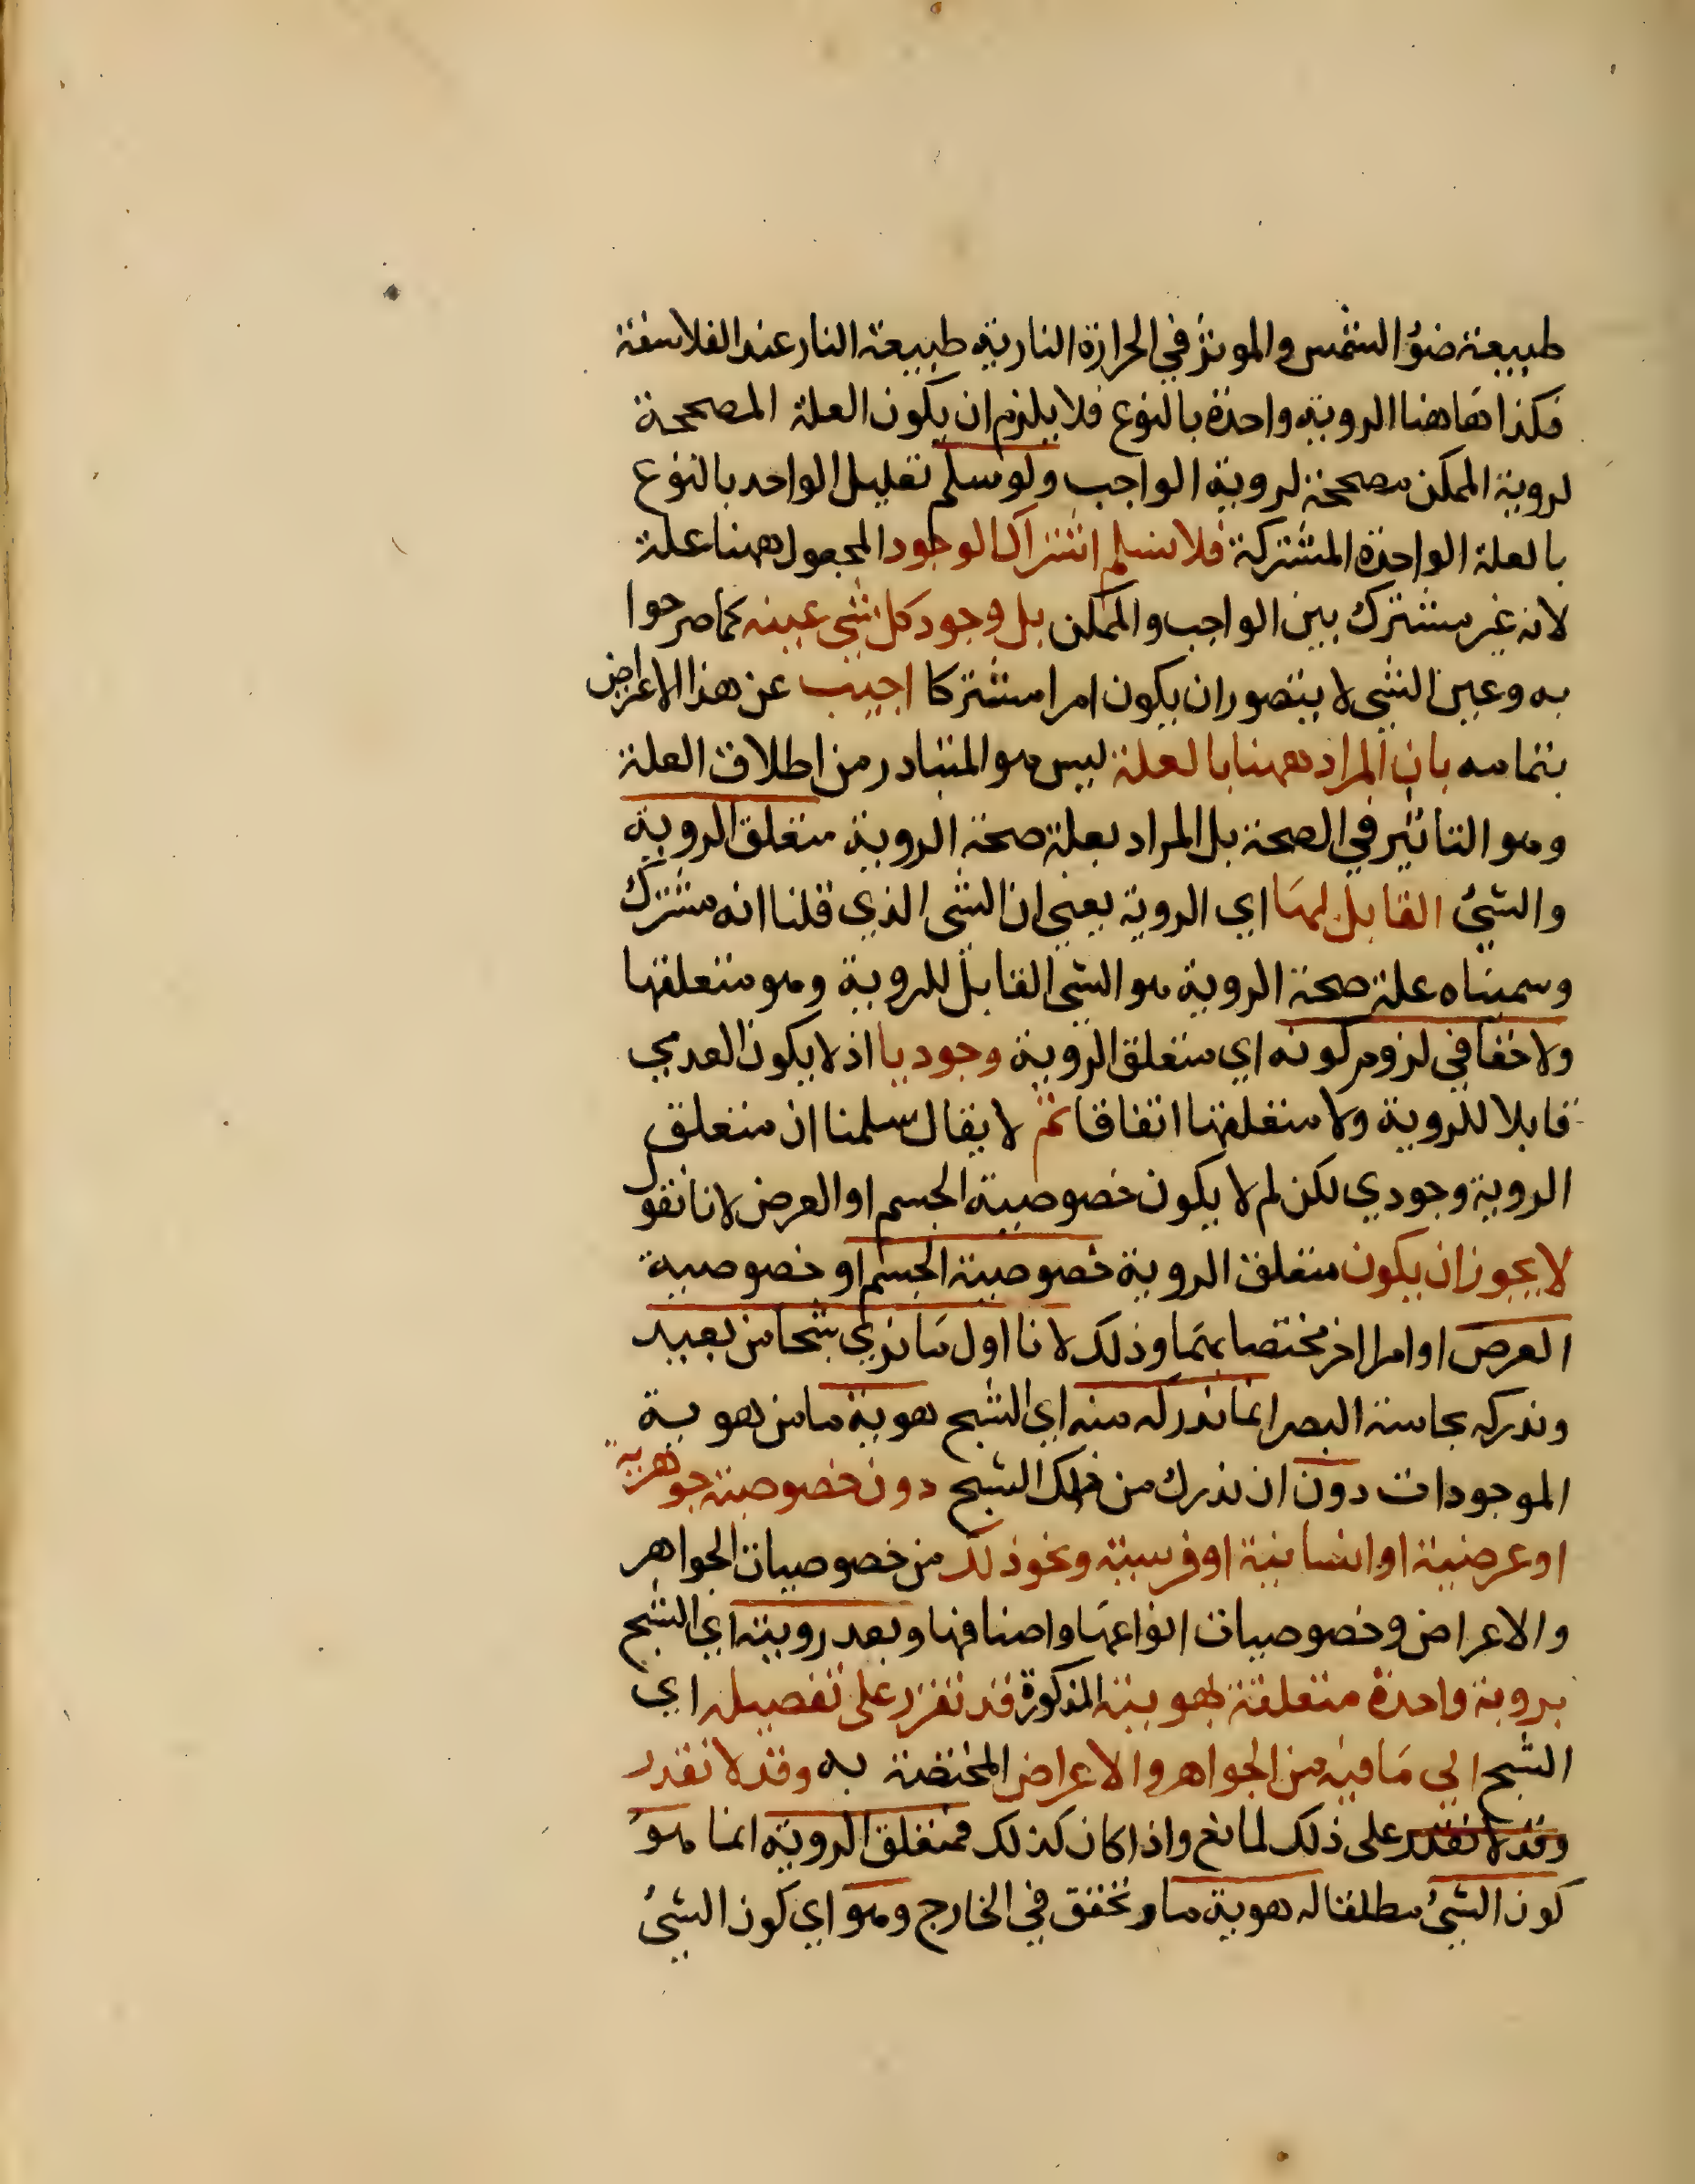 طبيعة ضوء الشمس والموثر في الحرارة النارية طبيعة النار عند الفلاسفة
فكذا هاهنا الروية واحدة بالنوع فلا يلزم ان يكون العلة المصححة
لروية الممكن مصححة لروية الواجب ولو سلم تعليل الواحد بالنوع
بالعلة الواحدة المشتركة فلا نسلم اشتراك الوجود المجعول ههنا علة
لانه غير مشترك بين الواجب والممكن بل وجود كل شي عينه كما صرحوا
به وعين الشي لا يتصور ان يكون امرا مشتركا اجيب عن هذا الاعتراض
بتمامه بان المراد ههنا بالعلة ليس هو المتبادر من اطلاق العلة
وهو التاثير في الصحة بل المراد بعلة صحة الروية متعلق الروية
والشيء القابل لها اي الروية يعني ان الشي الذي قلنا انه مشترك
وسميناه علة صحة الروية هو الشي القابل للروية وهو متعلقها
ولا خفا في لزوم كونه اي متعلق الروية وجوديا اذ لا يكون العدمي
قابلا للروية ولا متعلقها اتفاقا ثم لا يقال سلمنا ان متعلق
الروية وجودي لكن لم لا يكون خصوصية الجسم او العرض لانا نقول
لا يجوز ان يكون متعلق الروية خصوصية الجسم او خصوصية
العرض او امرا اخر مختصا بهما وذلك لانا اول ما نري شبحا من بعيد
وندركه بحاسة البصر انما ندركه منه اي الشبح هوية ما من هوية
الموجودات دون ان ندرك من ذلك الشبح دون خصوصية جوهرية
او عرضية او انسانية او فرسية ونحو ذلك من خصوصيات الجواهر
والاعراض وخصوصيات انواعها واصنافها وبعد رويته اي الشبح
بروية واحدة متعلقة بهويته المذكورة قد نقدر على تفصيله اي
الشبح الى ما فيه من الجواهر والاعراض المختصة به وقد لا نقدر
وقد لا نقدر على ذلك لمانع واذا كان كذلك فمتعلق الروية انما هو
كون الشيء مطلقا له هوية ما وتحقق في الخارج وهو اي كون الشيء